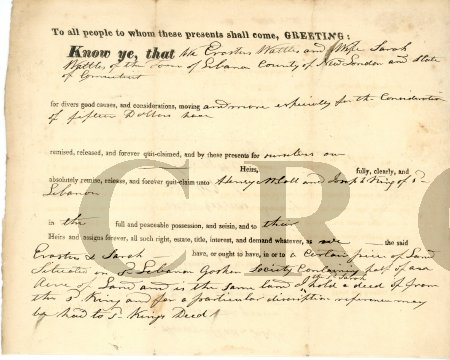 To all people to whom these presents shall come, GREETING:
Know ye, that We Erastus Wattles and Wife Sarah
Wattles of the town of Lebanon County of New London and State
of Connecticut
for divers good causes, and considerations, moving and more especially for the Consideration
of fifteen Dollars have
remised, released, and forever quit-claimed, and by these presents for ourselves our
Heirs, fully, clearly, and
absolutely remise, release, and forever quit-claim unto Henry and Joseph King of sd
Lebanon
in the full and peaceable possession, and seisin, and to their
Heirs and assigns forever, all such right, estate, title, interest, and demand whatever, as we the said
Erastus & Sarah have, or ought to have, in or to a Certain piece of Land
Situate in Lebanon Goshen Society Containing half of an
Acre of Land and is the same land I the sd Sarah hold a deed of from
the sd King and for a particular discription reference may
be had to sd Kings Deed
CRC